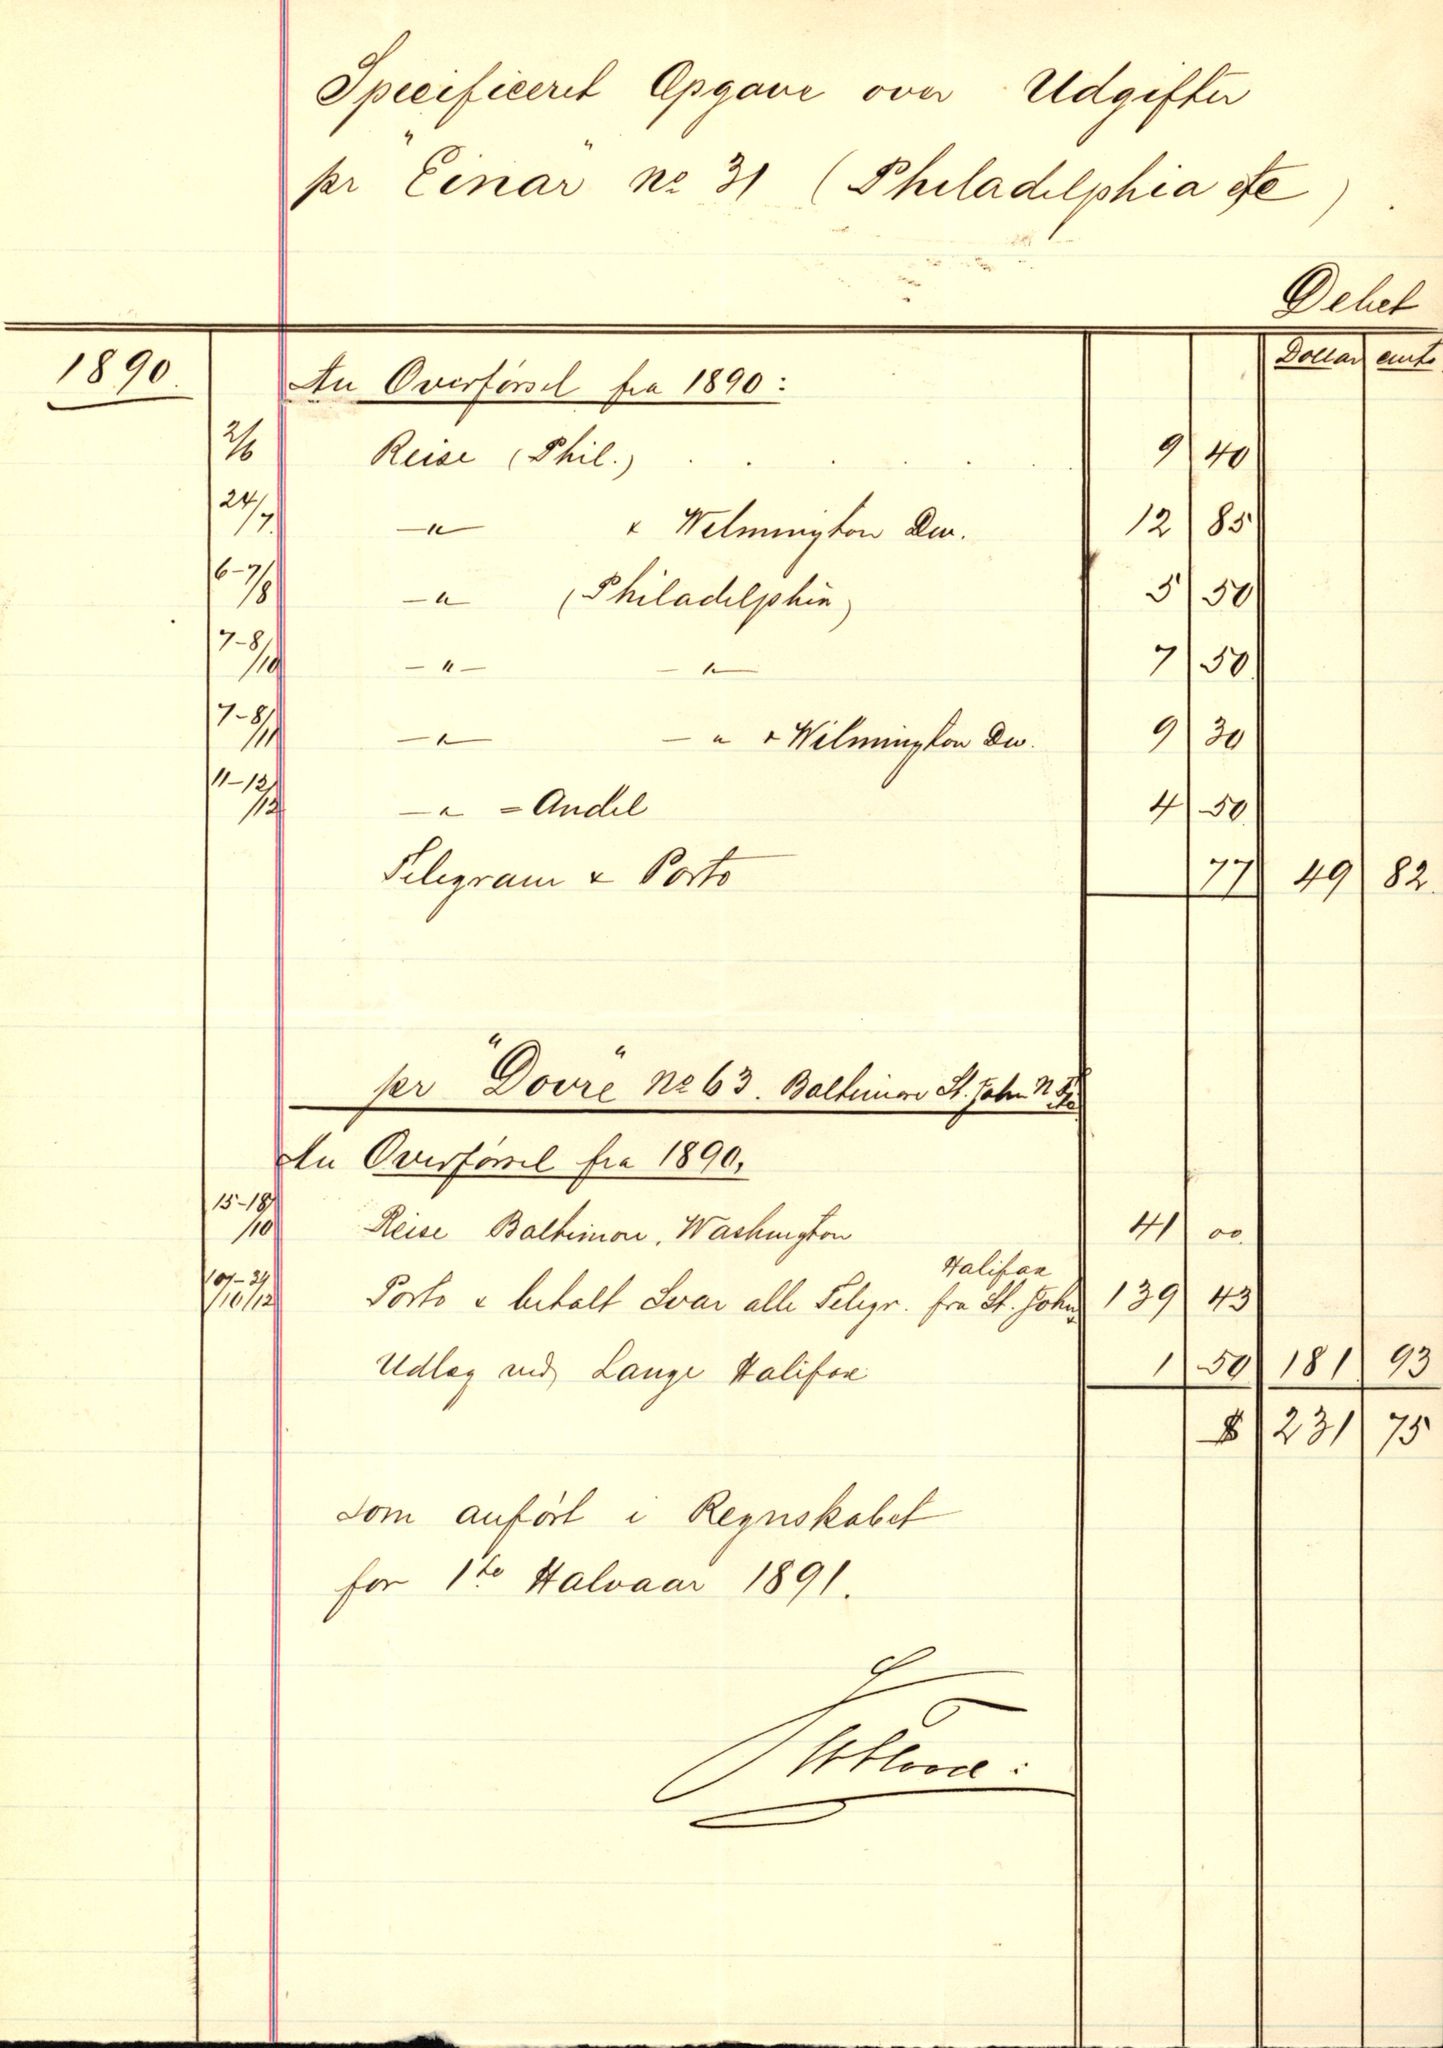 Specificeret Opgave over Udgifter
pr "Einar" No 31 (Philadelphia etc)
Debet
Dollar cents
1890. An Overførsel fra 1890:
2/6 Reise (Phil.) . . . . . . 9 40
24/7. —"— & Welmington Dew. 12 85
6-7/8 —"— (Philadelphia) 5 50
7-8/10 —"— —"— 7 50
7-8/11 —"— —"— & Wilmington Dew. 9 30
11-12/12 —"— = Andel 4 50
Telegram & Porto 77 49 82.
pr "Dovre" No 63. Baltimore St. John N F etc
An Overførsel fra 1890,
15-18/10 Reise Baltimore, Washington 41 00
Halifax
Porto & betalt Svar alle Telegr. fra St. John 139 43
Udlæg ved Lange Halifax 1 50 181 93
$ 231 75
som anført i Regnskabet
for 1ste Halvaar 1891.